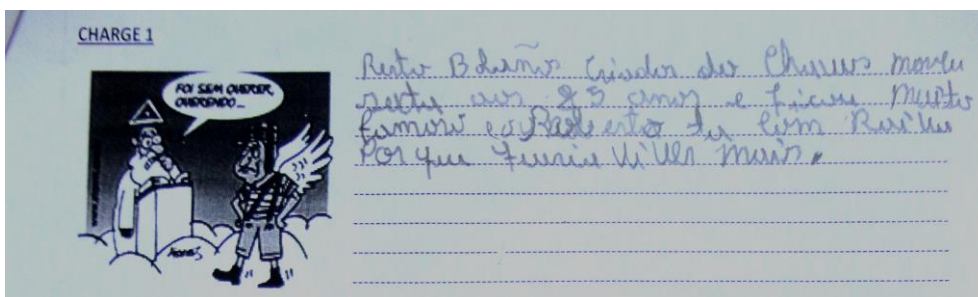 CHARGE 1
FOI SEM QUERER,
QUERENDO...
Bolaños Criador do Chaves morreu
sexta aos 85 anos e ficou muito
famoso e o Roberto ta com Raiva
Por que queria viver mais.